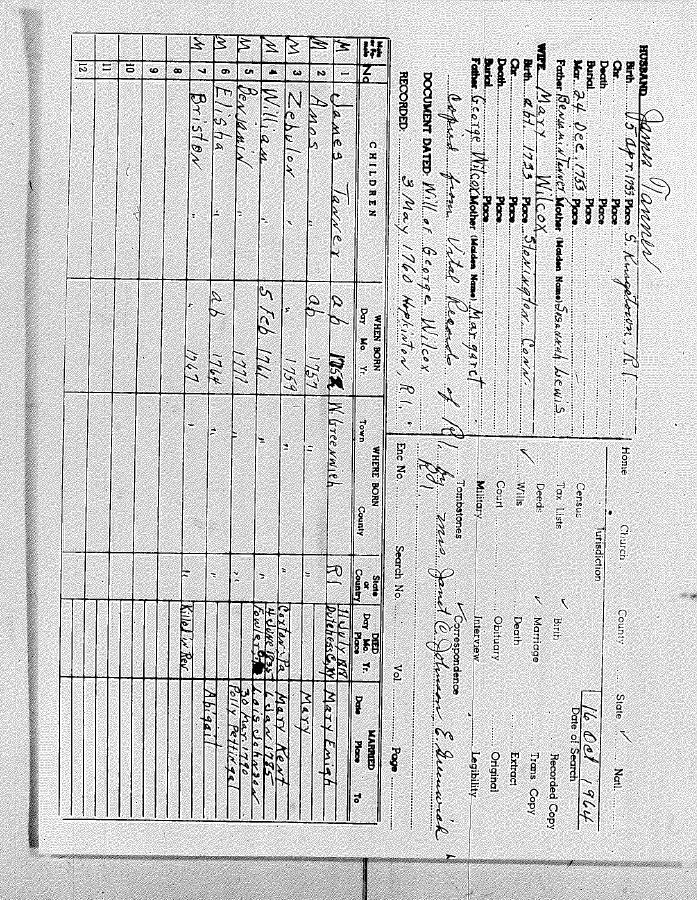 HUSBAND James Tanner
Birth 15 Apr. 1733 Place S. Kingstown, R.I.
Chr. Place
Death Place
Burial Place
Mar. 24 Dec. 1753 Place
Father Benjamin Tanner Mother (Maiden Name) Susannah Lewis
WIFE Mary Wilcox
Birth abt. 1733 Place Stonington Conn.
Chr. Place
Death Place
Burial Place
Father George Wilcox Mother (Maiden Name) Margaret
Copied from Vital Records of R.I. by Mrs Janet C. Johnson E Greenwich
R.I.
DOCUMENT DATED: Will of George Wilcox
RECORDED: 3 May 1760 Hopkinton, R.I.
Home Church County State ✓ Natl.
Jurisdiction
16 Oct 1964
Date of Search
Census
Tax Lists ✓ Birth Recorded Copy
Deeds ✓ Marriage Trans Copy
✓ Wills Death Extract
Court Obituary Original
Military Interview Legibility
Tombstones ✓ Correspondence
Enc No. Search No. Vol. Page
Male or Fe-male No. CHILDREN WHEN BORN Day Mo. Yr. WHERE BORN Town County State or Country DIED Day Mo. Yr. Place MARRIED Date Place To
M 1 James Tanner ab W. Greenwich RI 11 July 1818 Dutchess Co, NY Mary Emigh
M 2 Amos " ab 1757 " " Mary
M 3 Zebulon " " 1759 " " Corton Pa Mary Kent
M 4 William " 5 Feb 1761 " " 4 June 1835 Fowler 6 Jan 1785 Lois Johnson
M 5 Benjamin " 1771 " " 30 Mar. 1790 Polly Pettingel
M 6 Elisha " ab 1764 " " Abigail
M 7 Briston " " 1767 " " Killd in Rev
8
9
10
11
12